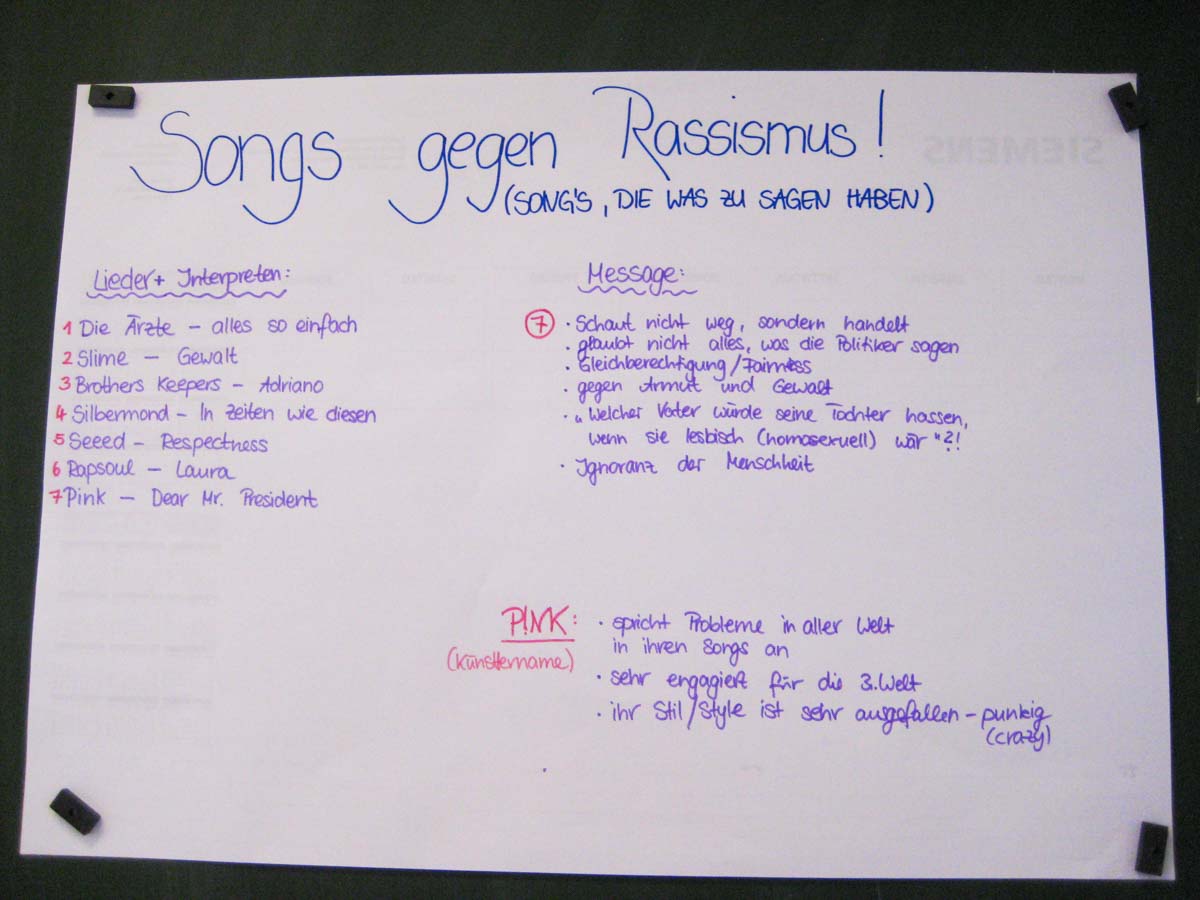 Songs gegen Rassismus!
(SONG'S, DIE WAS ZU SAGEN HABEN)
SIEMENS
Lieder + Interpreten:
1 Die Ärzte – alles so einfach
2 Slime – Gewalt
3 Brothers Keepers – Adriano
4 Silbermond – In Zeiten wie diesen
5 Seeed – Respectness
6 Rapsoul – Laura
7 Pink – Dear Mr. President
Message:
7 · Schaut nicht weg, sondern handelt
· glaubt nicht alles, was die Politiker sagen
· Gleichberechtigung/Fairness
· gegen Armut und Gewalt
· „Welcher Vater würde seine Tochter hassen,
wenn sie lesbisch (homosexuell) wär"?!
· Ignoranz der Menschheit
P!NK: · spricht Probleme in aller Welt
(Künstlername) in ihren Songs an
· sehr engagiert für die 3. Welt
· ihr Stil/Style ist sehr ausgefallen – punkig
(crazy)